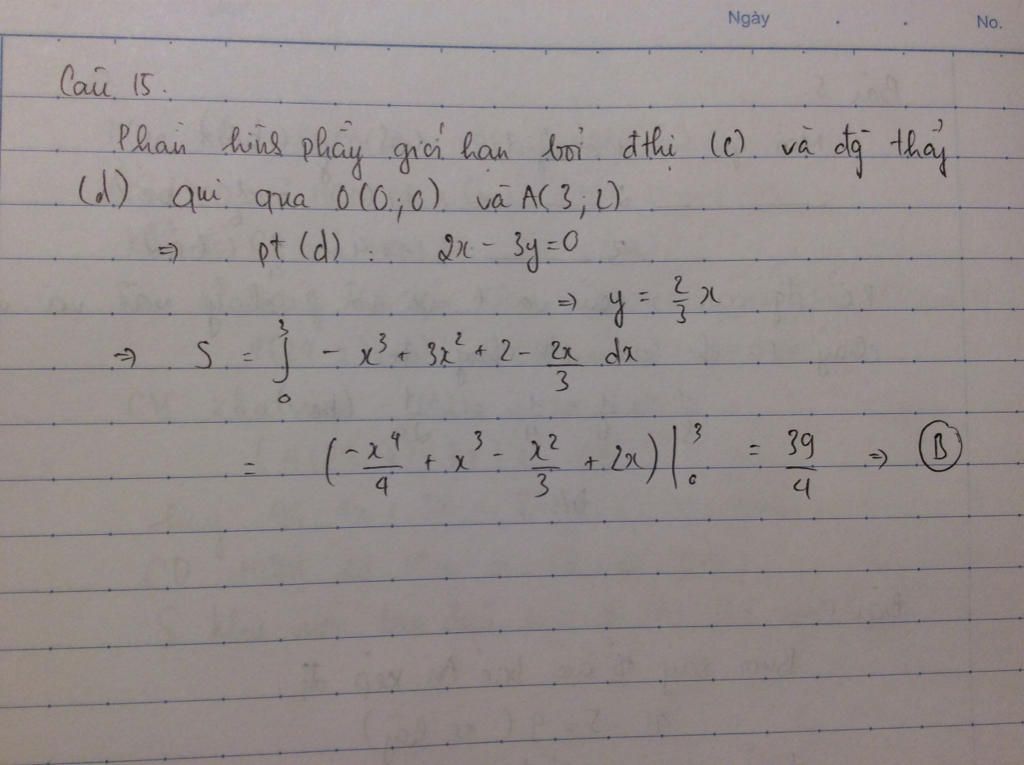 Ngày . . No.
Câu 15.
Phần hình phẳng giới hạn bởi đthị (C) và đg thẳng
(d) qui qua O(0;0) và A(3;2)
⇒ pt (d) : 2x - 3y = 0
⇒ y = 2/3 x
⇒ S = ∫₀³ - x³ + 3x² + 2 - 2x/3 dx
= (-x⁴/4 + x³ - x²/3 + 2x)|₀³ = 39/4 ⇒ Ⓑ